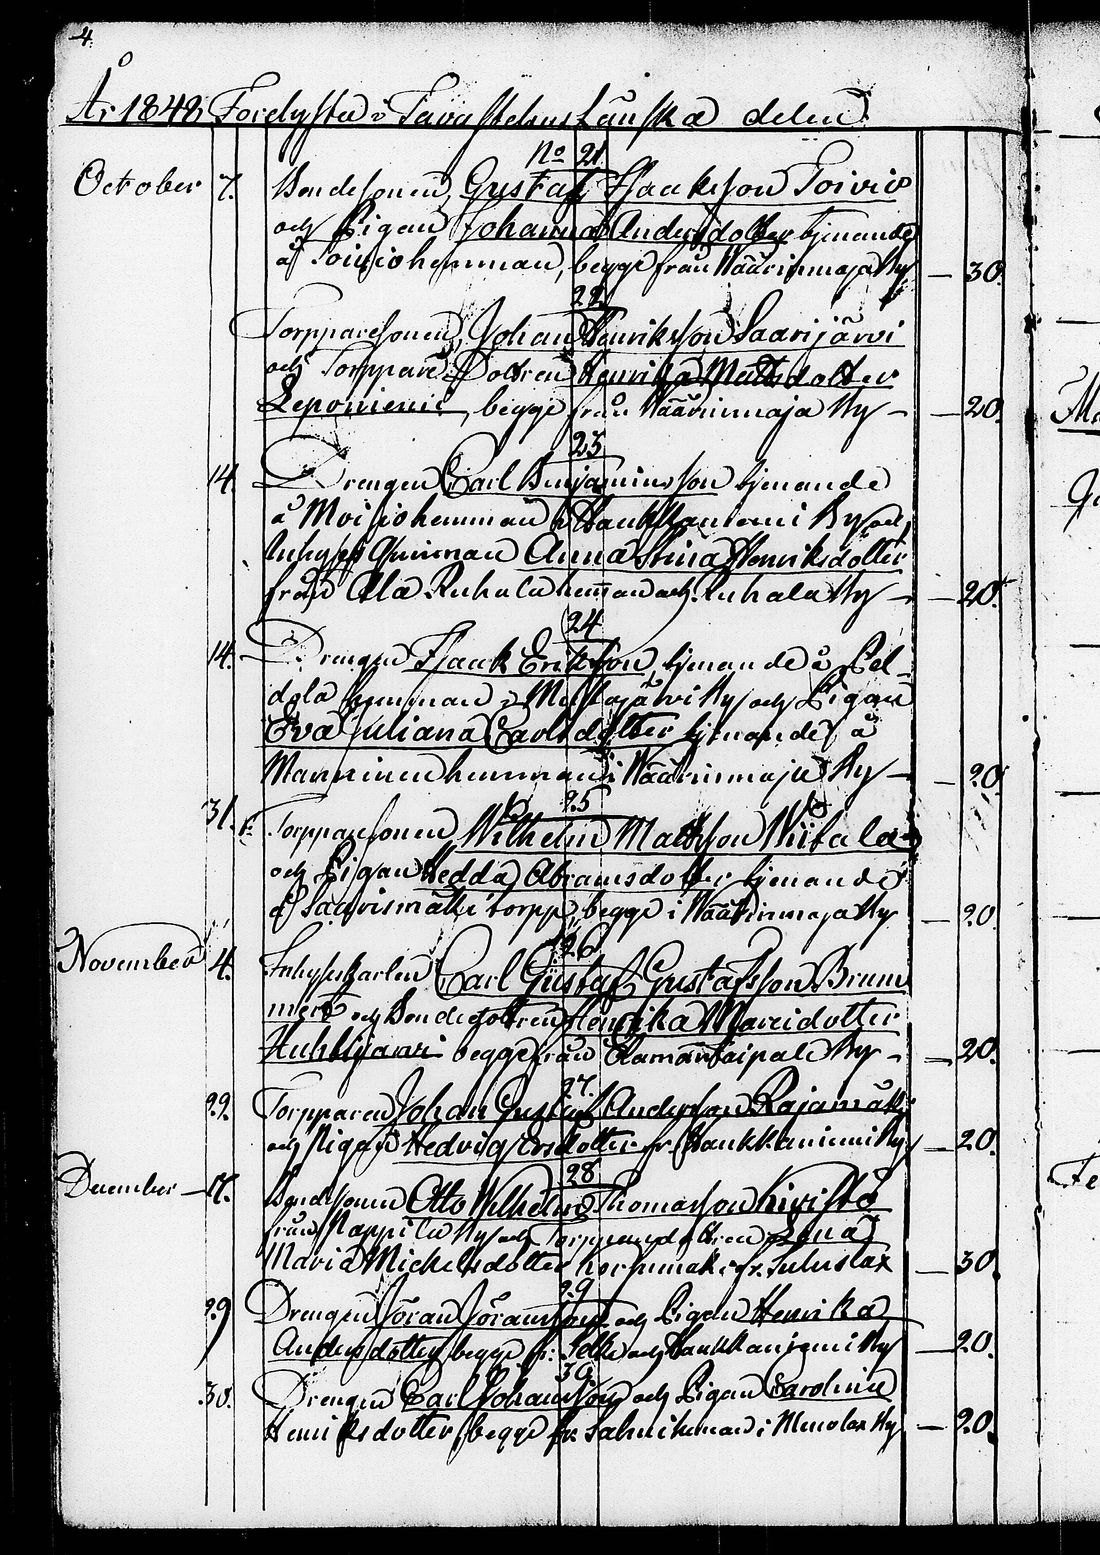 4
År 1848, Forelyste i Tavastehus Länska delen
No 21.
October 7. Bondesonen, Gustaf Isaaksson Toivio
och Pigan Johanna Andersdotter tjenande
å Toivio hemman, begge från Wäärinmaja By — 30.
22.
Torpparesonen, Johan Henriksson Saarijärvi
och Torppare Dottren Henrika Mattsdotter
Leponiemi, begge från Wäärinmaja By — 20.
23
14. Drengen Carl Benjaminsson tjenande
å Moisio hemman i Hankkaniemi By och
Inhyses Qvinnan Anna Stina Henriksdotter
från Ala Ruhala hemman och Ruhala By — 20.
24
14. Drengen Isaak Eriksson, tjenande å Pel-
dola hemman i Mustajärvi By och Pigan
Eva Juliana Carlsdotter tjenande å
Manninen hemman i Wäärinmaja By — 20.
25
31. Torpparesonen Wilhelm Mattsson Wiitala
och Pigan Hedda Abramsdotter tjenande
å Saarismäki torpp, begge i Wäärinmaja By — 20
26
November 4. Inhyskarlen Carl Gustaf Gustafsson Brum
mert och Bondedottren Henrika Mareidotter
Huhtijärvi begge från By — 20.
27.
22. Torpparen Johan Gustaf Andersson Rajamäki
och Pigan Hedvig Ersdotter fr. Hankkaniemi By 20.
28
December — 17. Bondesonen Otto Wilhelm Thomasson Kivistö
från Pappila By och Torpparedottren Lena
Maria Mickelsdotter fr. — 30.
29
29 Drengen Jöran Jöransson och Pigan Henrika
Andersdotter begge fr. och Hankkaniemi By — 20.
30
30. Drengen Carl Johansson och Pigan Carolina
Henriksdotter, begge fr. i By — 20.